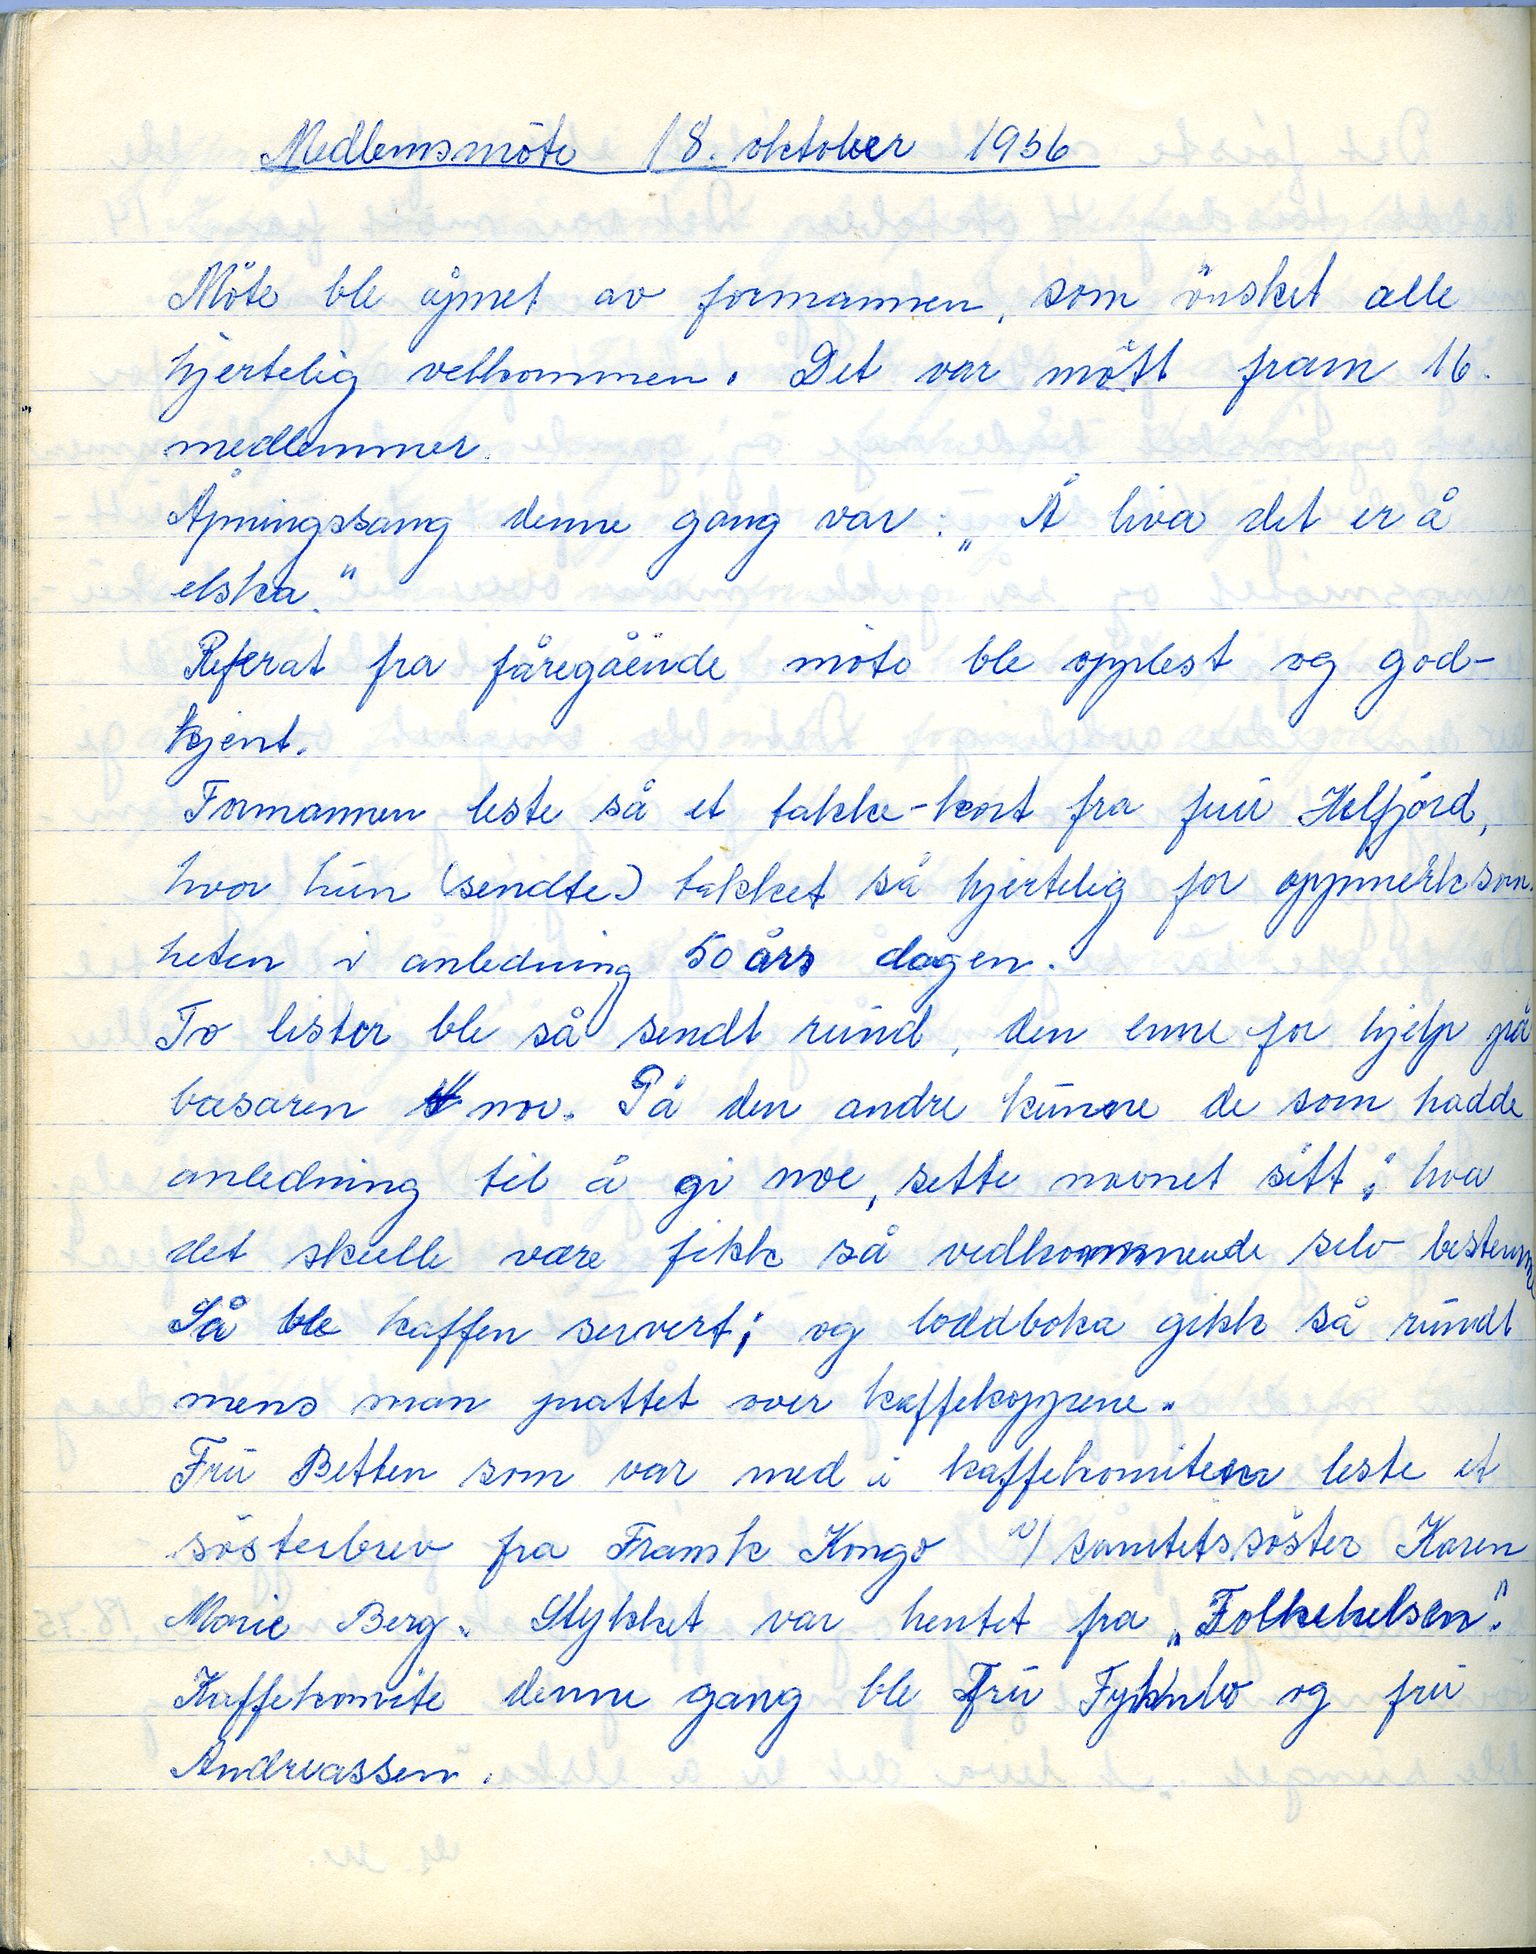 Medlemsmöte 18. oktober 1956
Möte ble åpnet av formannen, som önsket alle
hjertelig velkommen. Det var mött fram 16.
medlemmer.
Åpningssang denne gang var: „Å liva det er å
elska."
Referat fra fåregåénde möte ble opplest og god-
kjent.
Formannen leste så et takke-kort fra frü Helfjörd,
hvor hün (sendte) takket så hjertelig for oppmerksom.
heten i anledning 50 års dagen.
To lister ble så sendt ründ, den enne for hjelp på
basaren nov. På den andre künne de som hadde
anledning til å gi noe, sette navnet sitt; hva
det skulle være fikk så vedkommende selv bestemme
Så ble kaffen servert; og loddboka gikk så ründt
mens man prattet over kaffekoppene.
Frü Betten som var med i kaffekomiteen leste et
sösterbrev fra Fransk Kongo v/ sanitetssöster Karen
Marie Berg. Stykket var hentet fra „Folkehelsen".
Kaffekomite denne gang ble Frü Fyknbo og frü
Andreassen.